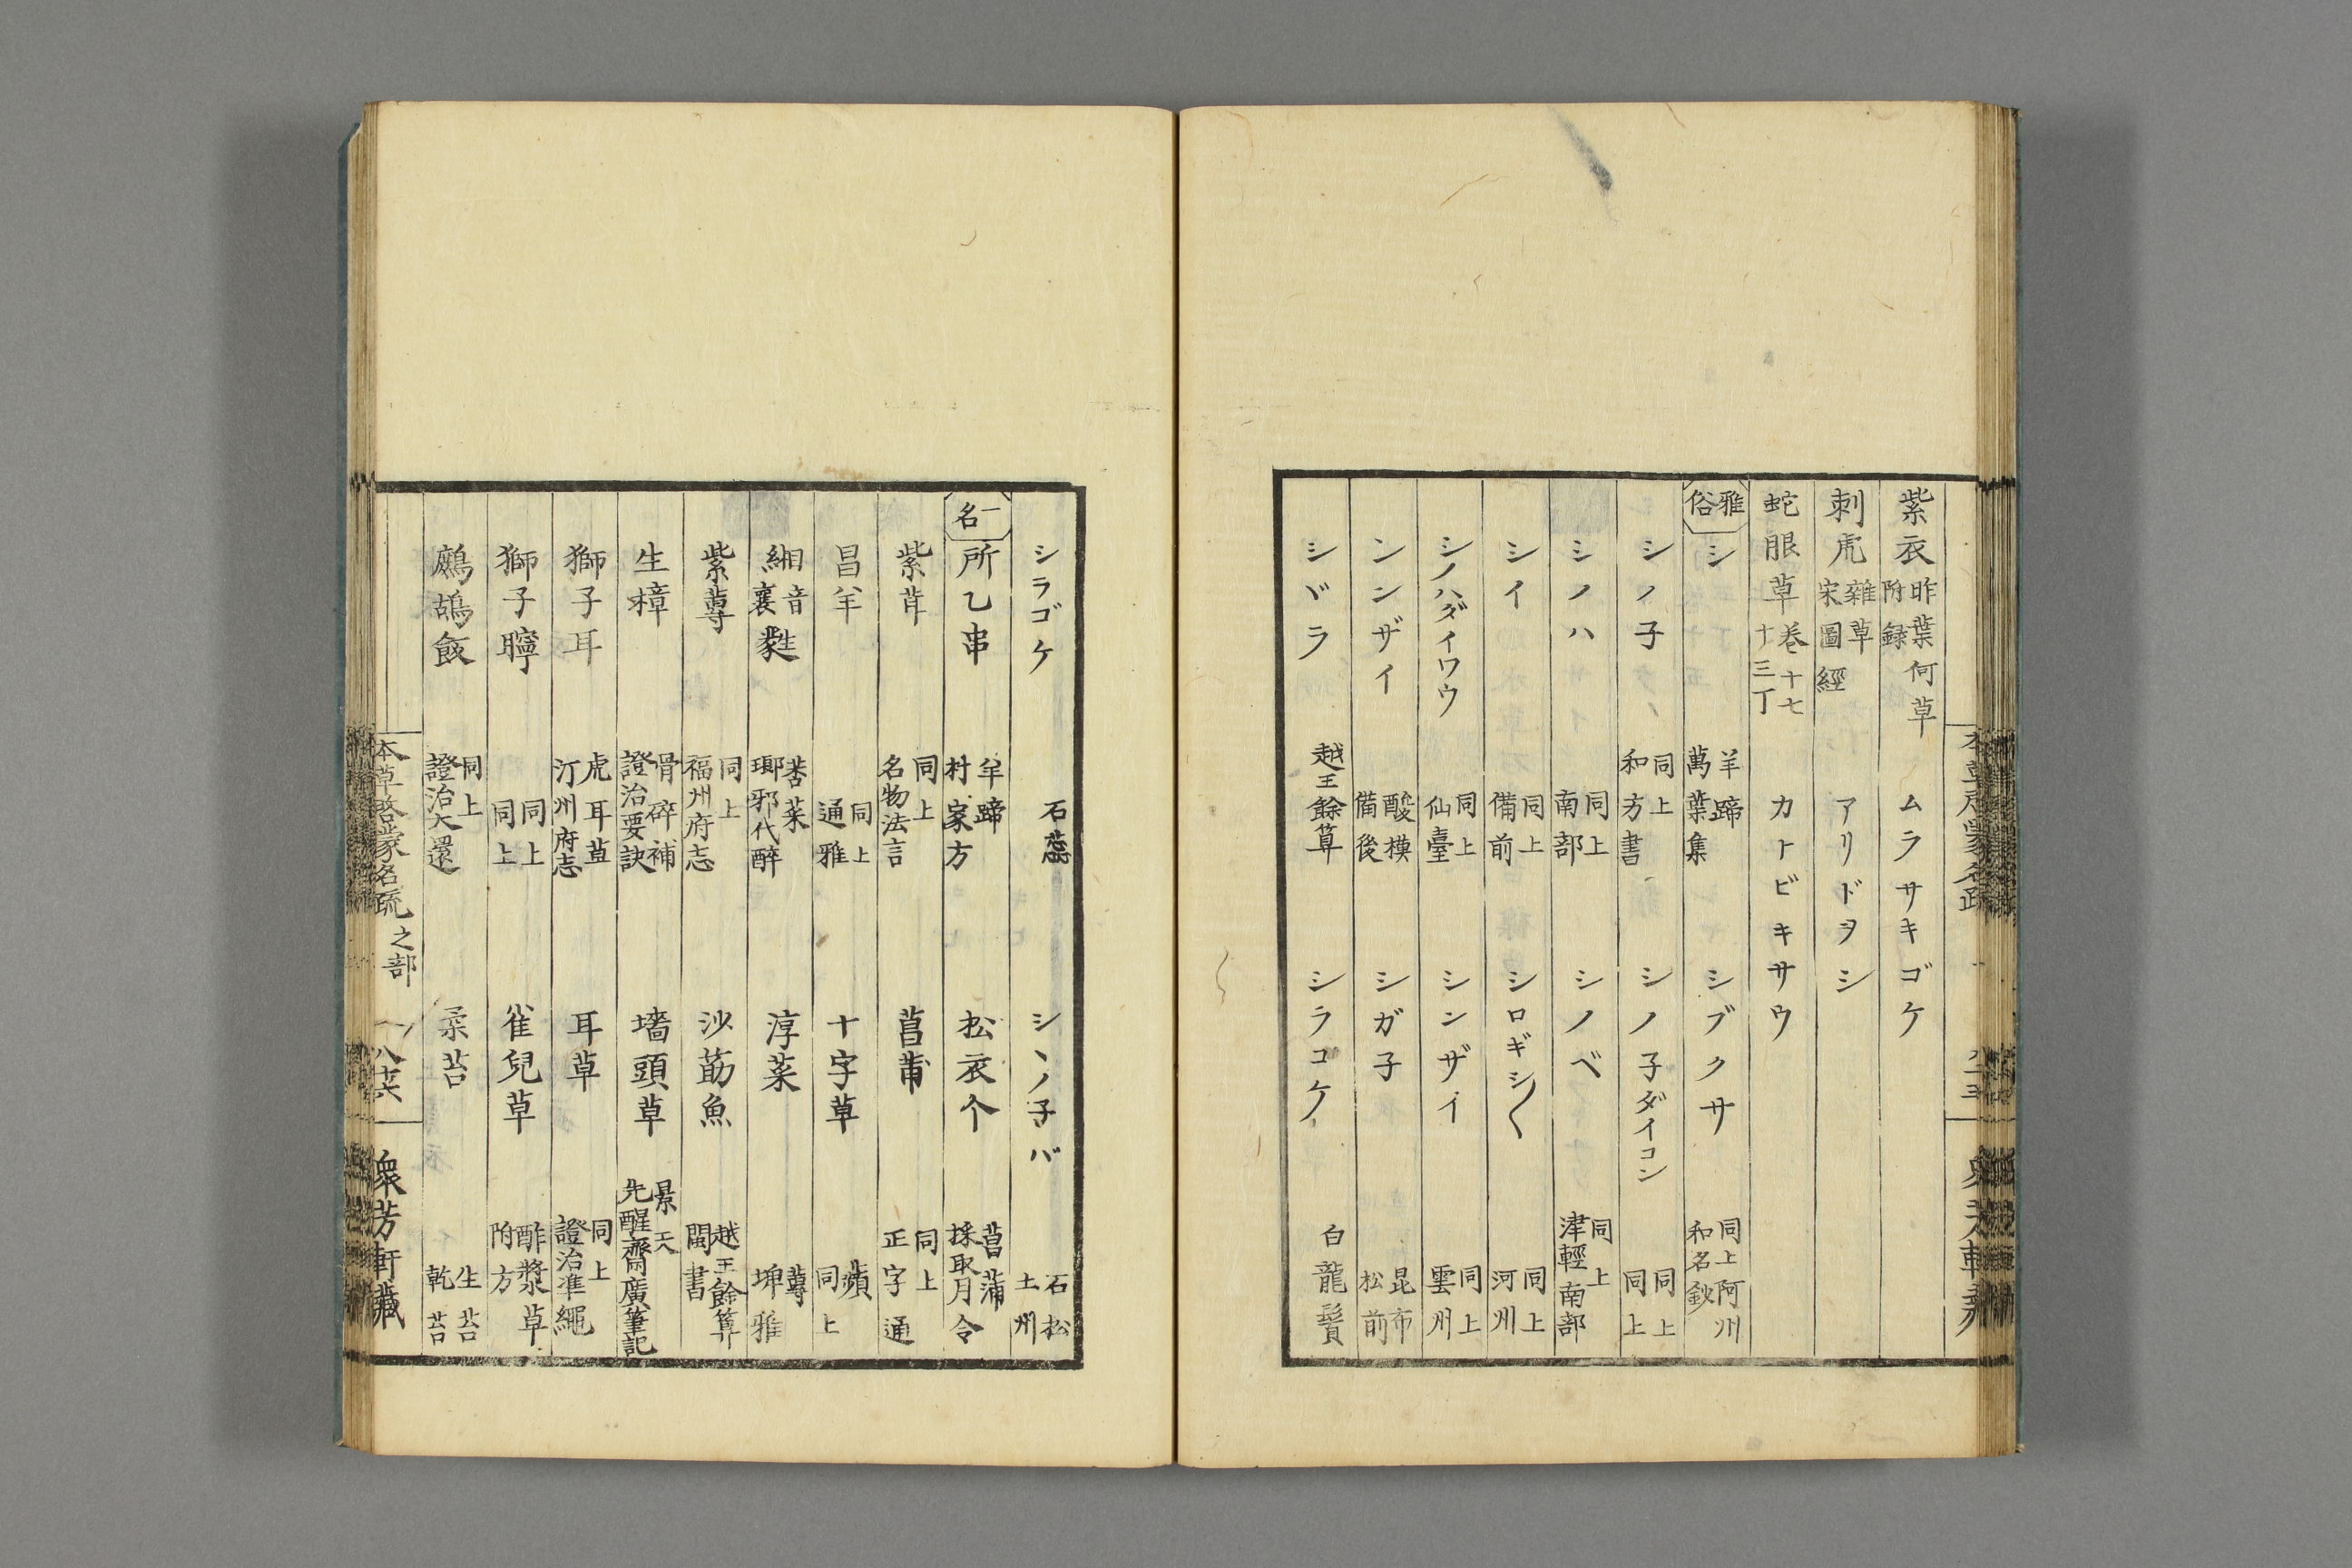 紫衣 昨葉何草附録 ムラサキゴケ
刺虎 雑草宋圖經 アリドヲシ
蛇眼草 巻十七十三丁 カトビキサウ
雅俗 シ 羊蹄萬葉集 シブクサ 同上和名鈔阿州
シノ子 同上和方書 シノ子ダイコン 同上同上
シノハ 同上南部 シノベ 同上津輕南部
シイ 同上備前 シロギシ〱 同上河州
シノハダイワウ 同上仙臺 シンザイ 同上雲州
シンザイ 酸模備後 シガ子 昆布松前
シバラ 越王餘算 シラコケ 白龍鬚
シラゴケ 石蕊 シヽノ子バ 石松土州
一名 所乙串 羊蹄村家方 松衣个 菖蒲採取月令
紫茸 同上名物法言 菖莆 同上正字通
昌羊 同上通雅 十字草 蘋同上
緗音襄 苦菜瑯邪代醉 淳菜 蓴埤雅
紫蓴 同上福州府志 沙莇魚 越王餘算閩書
生樟 骨碎補證治要訣 墻頭草 景天先醒齋廣筆記
獅子耳 虎耳草汀州府志 耳草 同上證治準繩
獅子聹 同上同上 雀兒草 酢漿草附方
鷓鴣飯 同上證治大還 柔苔 生苔乾苔
本草啓蒙名疏 之部 八十六 衆芳軒藏